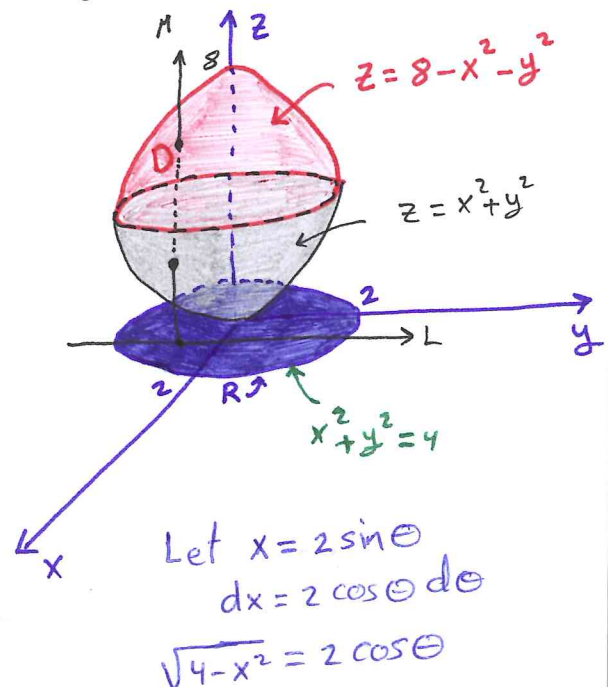 M
z
8
z = 8 - x² - y²
D
z = x² + y²
2
y
L
2
R
x² + y² = 4
x
Let x = 2 sin θ
dx = 2 cos θ dθ
√(4-x²) = 2 cos θ